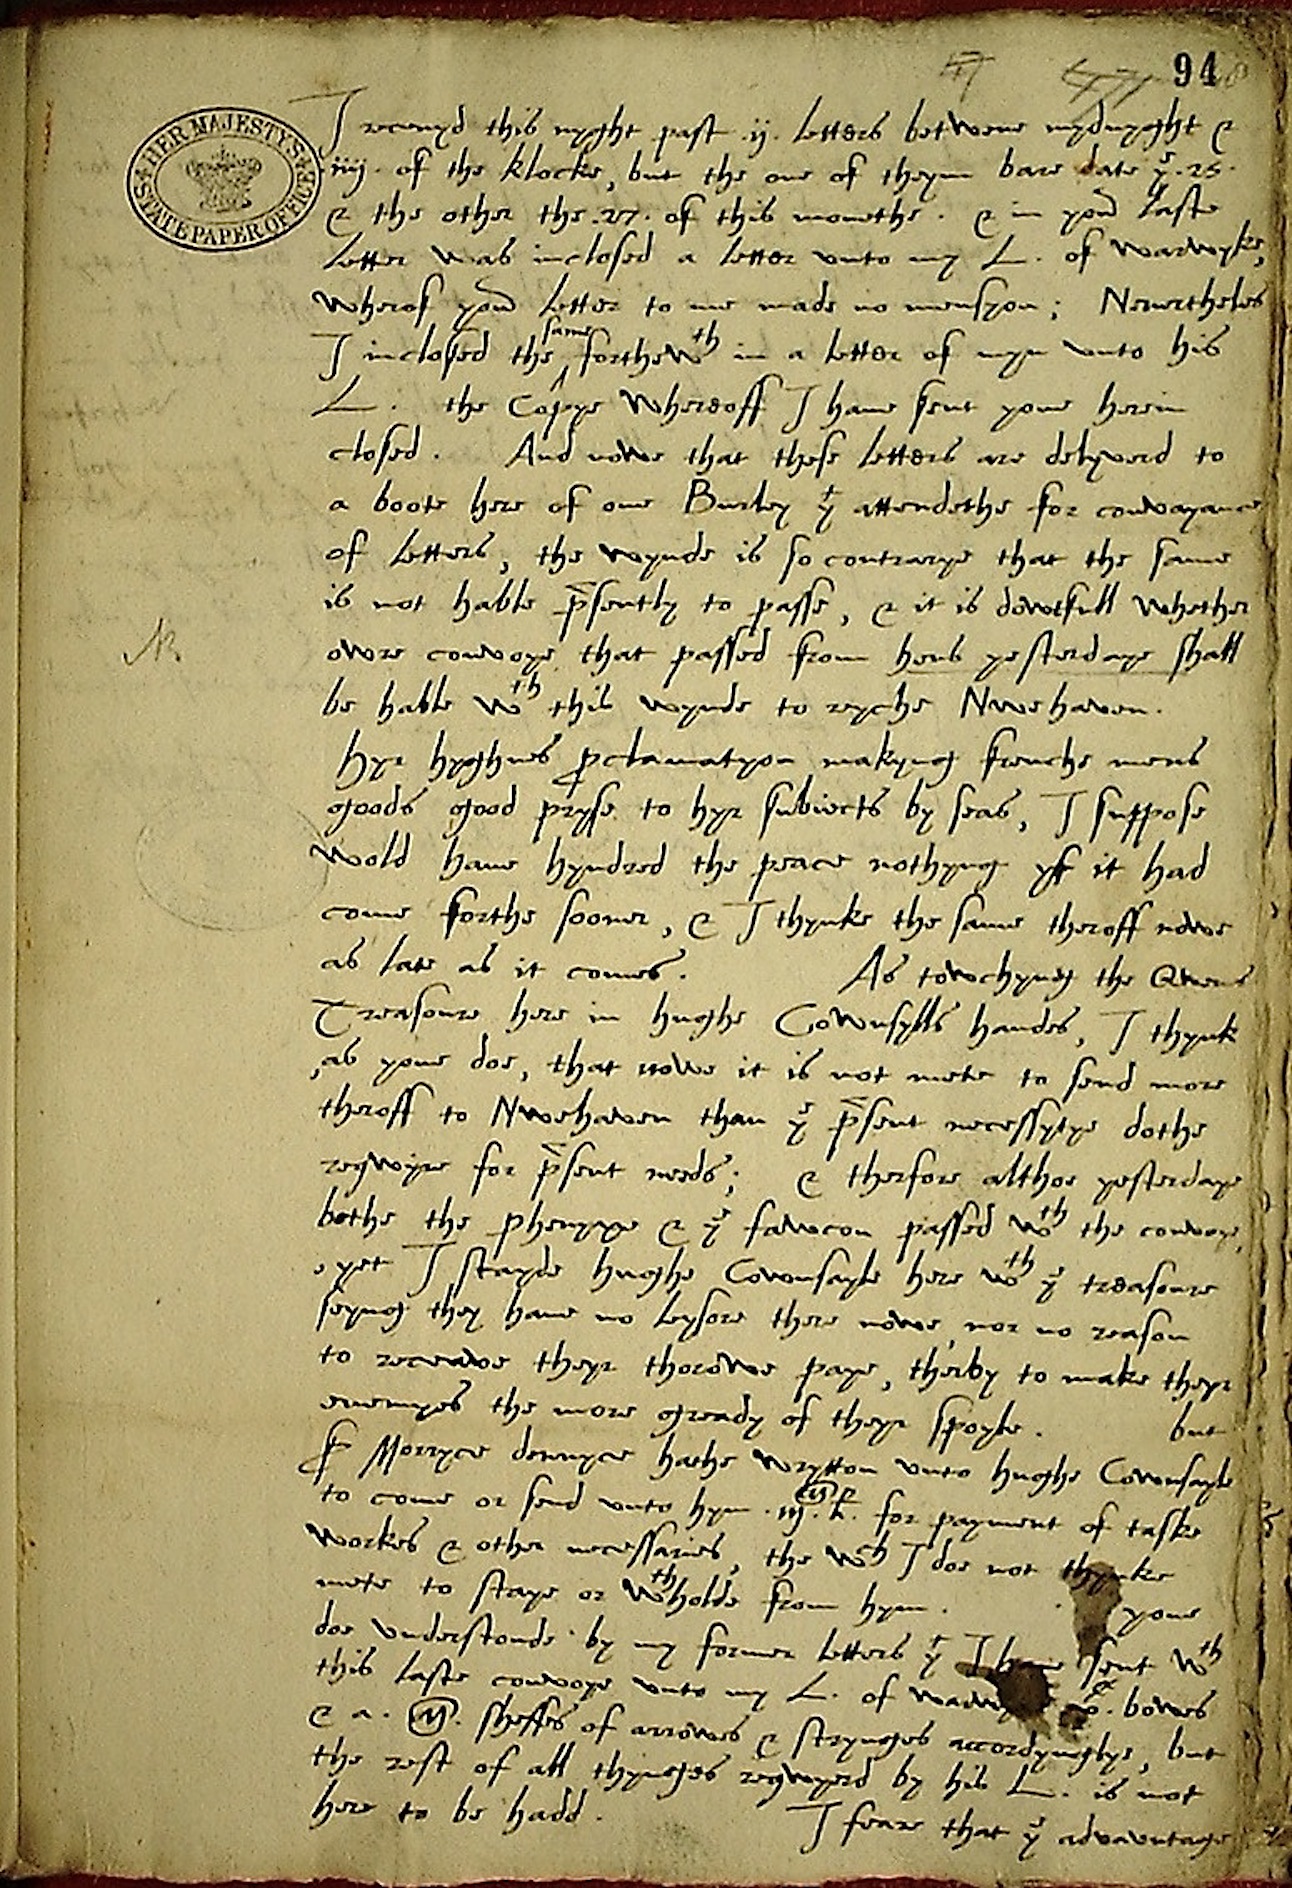 94
HER MAJESTY'S STATE PAPER OFFICE
I receuyd this nyght past .ij. letters betwene mydnyght &
.iiij. of the klocke, but the one of theym bare date yͤ .25.
& the other the .27. of this monethe. & in yoʳ laste
letter was inclosed a letter vnto my L. of Warwyke,
wherof yoʳ letter to me made no mensyon; Neuertheles
I inclosed the same forthewᵗʰ in a letter of myn vnto his
L. the Copye wheroff I haue sent youe herein
closed. And nowe that these letters are delyverd to
a boote here of one Burley yᵗ attendethe for conveyance
of letters, the wynde is so contrarye that the same
is not hable p̄sently to passe, & it is dowtfull whether
N.
owre convoye that passed from hens yesterdaye shall
be hable wᵗʰ this wynde to reyche Nwehaven.
Hyr hyghnes ꝓclamatyon makyng frenche mens
goods good pryse to hyr subiects by seas, I suppose
wold haue hyndred the peace nothyng yf it had
come forthe sooner, & I thynke the same theroff nowe
as late as it comes. As towchyng the Qwens
Treasoure here in hughe Cownsylls handes, I thynk
as youe doe, that nowe it is not mete to send more
theroff to Nwehaven than yͤ p̄sent necessytye dothe
reqwyre for p̄sent needs; & therfore althoe yesterdaye
bothe the phenyxe & yͤ fawcon passed wᵗʰ the convoye,
yet I stayde hughe Cownsayle here wᵗʰ yͤ treasoure
seyng they haue no leysore there nowe, nor no reason
to receave theyr thorowe paye, therby to make theyr
enemyes the more gready of theyr spoyle. but
Sʳ Morryce dennyce hathe wrytton vnto hughe Cownsayle
to come or send vnto hym .iijᴹ.£. for payment of taske
workes & other necessaries, the wᶜʰ I doe not thynke
mete to staye or wᵗʰholde from hym. youe
doe vnderstonde by my former letters yᵗ I haue sent wᵗʰ
this laste convoye vnto my L. of bowes
& a .M. sheffes of arrowes & strynges accordynglye, but
the rest of all thynges reqwyerd by his L. is not
here to be hadd. I feare that yͤ advauntage